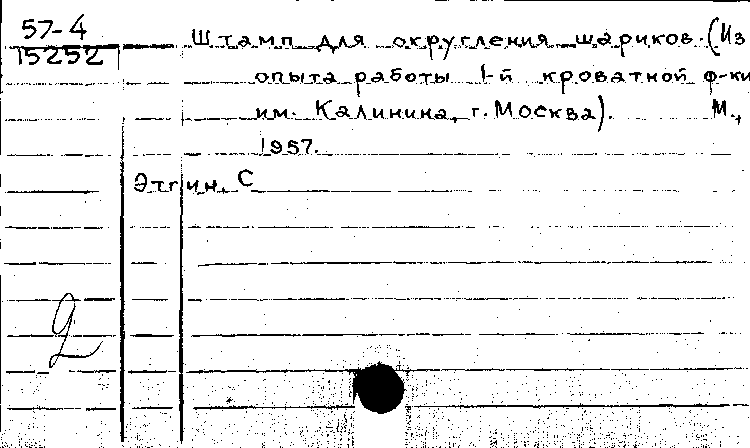 57-4
15252
Штамп для округления шариков. (Из
опыта работы 1-й кроватной ф-ки
им. Калинина, г. Москва). М.,
1957.
Этгин, С